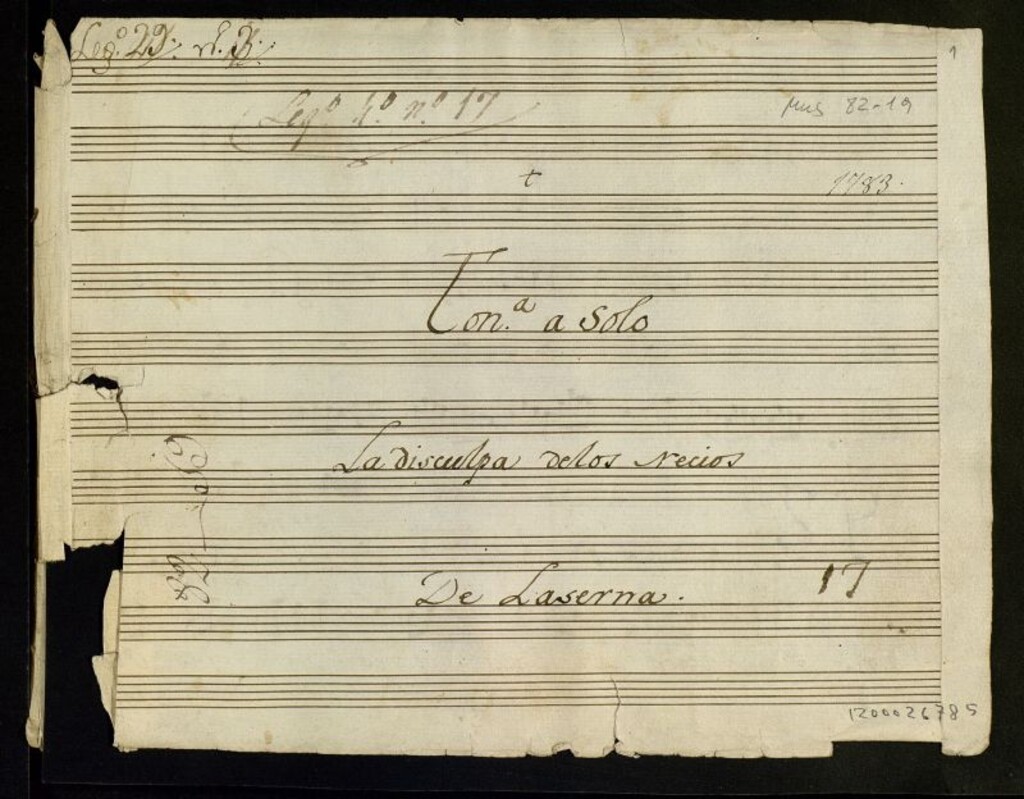 Leg.º 29. nº. 3.
1
Legº 4º nº 17
Mus 82-19
+
1783.
Ton.ª a Solo
La disculpa delos Necios
De Laserna.
17
1200026785